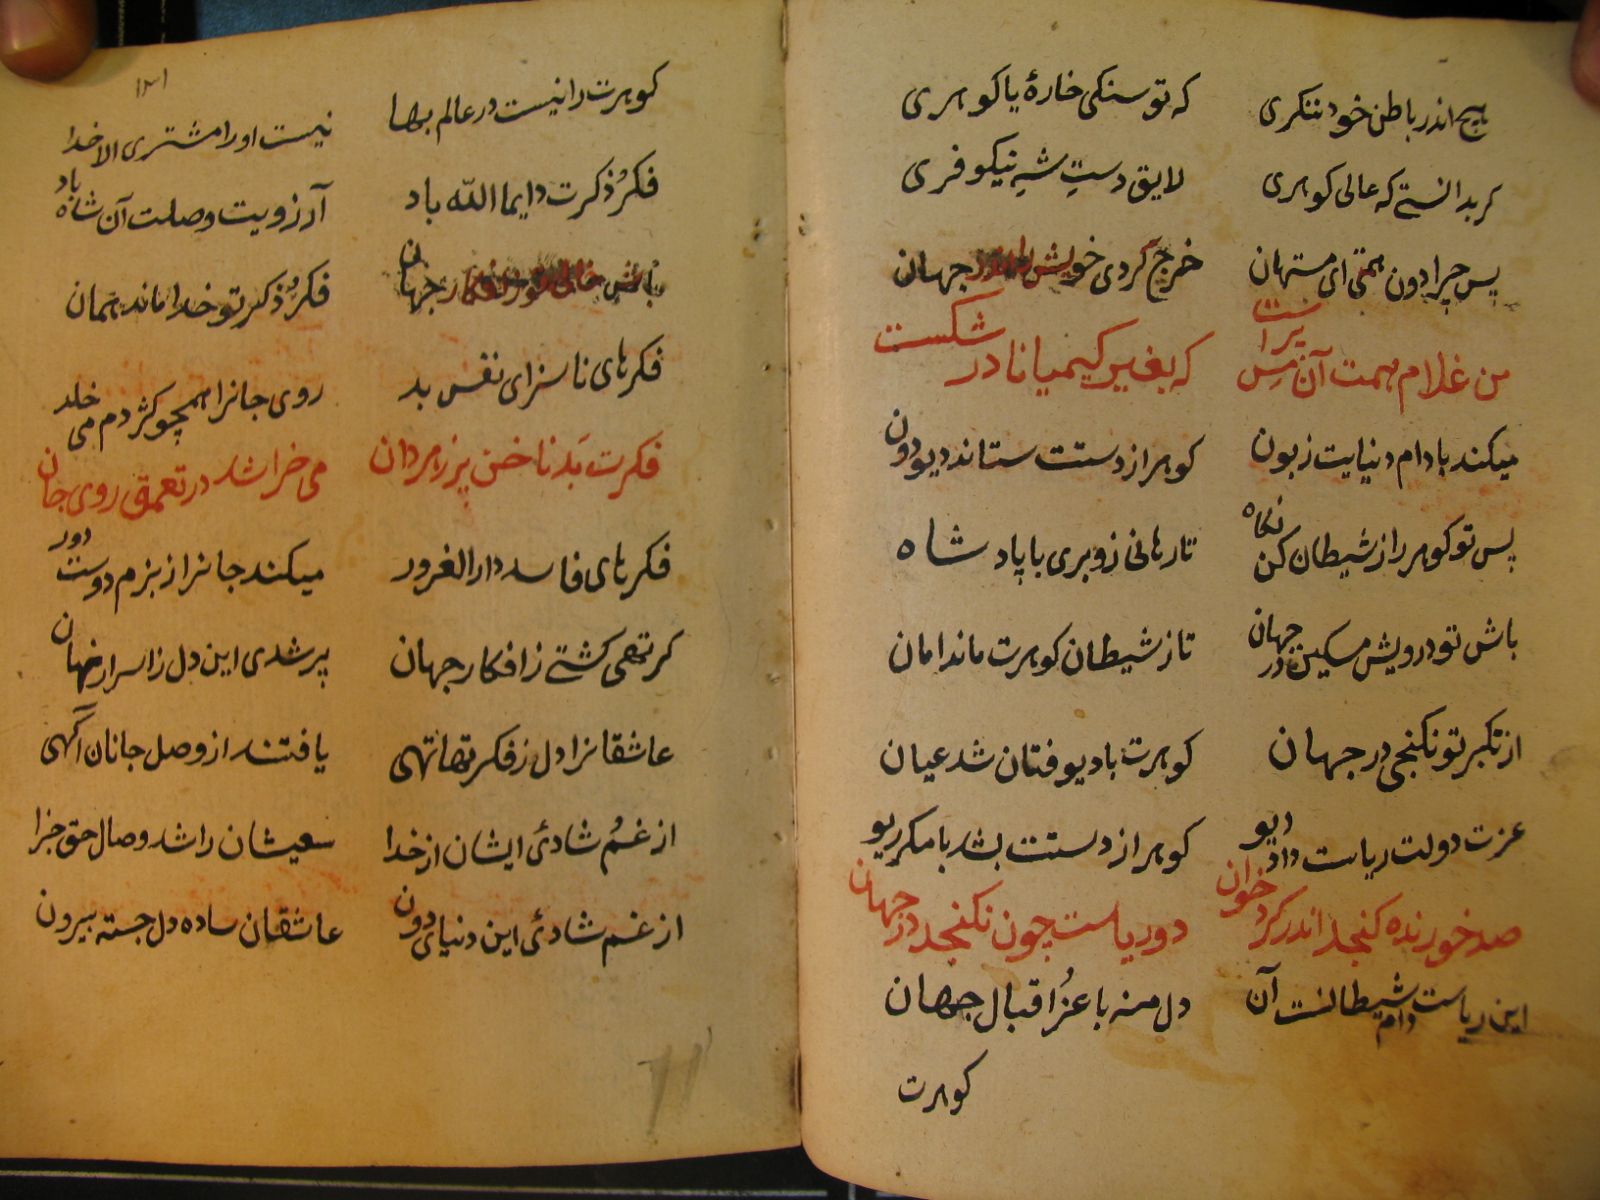 هیچ اندر باطن خود ننکری که تو سنکی خارهٔ یا کوهری
کر بدانستی که عالی کوهری لایق دستِ شهِ نیکو فری
پس چرا دون همتی ای مستهان خرج کردی خویش را اندر جهان
من غلام همت آن مسِ پرست که بغیر کیمیا نارد شکست
میکند با دام دنیایت زبون کوهر از دستت ستاند دیو دون
پس تو کوهر را ز شیطان کن نکاه تا رهانی زو بری با پادشاه
باش تو درویش مسکین در جهان تا ز شیطان کوهرت ماند امان
از تکبر تو نکنجی در جهان کوهرت با دیو فتان شد عیان
عزت دولت ریاست داد دیو کوهر از دستت بشد با مکر ریو
صد خورنده کنجد اندر کرد خوان دو ریاست چون نکنجد در جهان
این ریاست دام شیطانست آن دل منه با عزُ اقبال جهان
کوهرت
۱۳۱
کوهرت را نیست در عالم بها نیست او را مشتری الا خدا
فکرُ ذکرت دایما الله باد آرزویت وصلت آن شاه باد
باش خالی تو ز افکار جهان فکرُ ذکر تو خدا ماند همان
فکرهای ناسزای نفس بد روی جانرا همچو کژدم می خلد
فکرت بَد ناخن پر زهر دان می خراشد در تعمق روی جان
فکرهای فاسد دار الغرور میکند جانرا ز بزم دوست دور
کر تهی کشتی ز افکار جهان پر شدی این دل ز اسرار نهان
عاشقانرا دل ز فکرتها تهی یافتند از وصل جانان آکهی
از غمُ شادئ ایشان از خدا سعیشان را شد وصال حق جزا
از غم شادئ این دنیای دون عاشقان ساده دل جسته بیرون